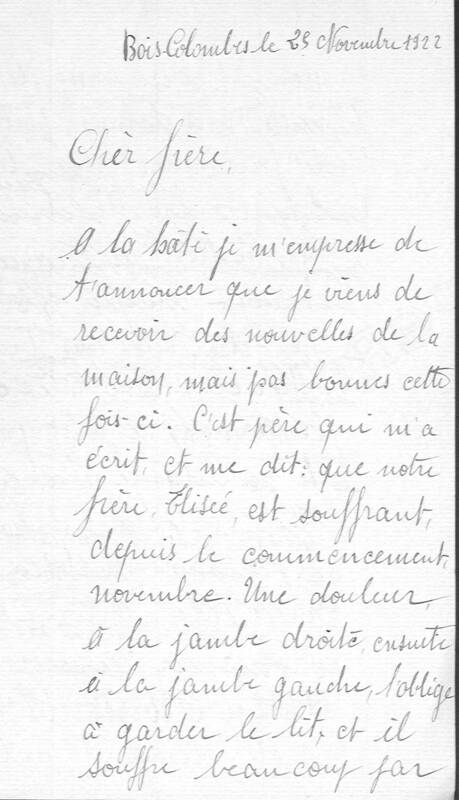 Bois-Colombes le 29 Novembre 1922
Chèr frère,
A la hâte je m'empresse de
t'annoncer que je viens de
recevoir des nouvelles de la
maison, mais pas bonnes cette
fois-ci. C'est père qui m'a
écrit, et me dit: que notre
frère, Elisée, est souffrant,
depuis le commencement,
novembre. Une douleur,
à la jambe droite, ensuite
à la jambe gauche, l'oblige
à garder le lit, et il
souffre beaucoup par